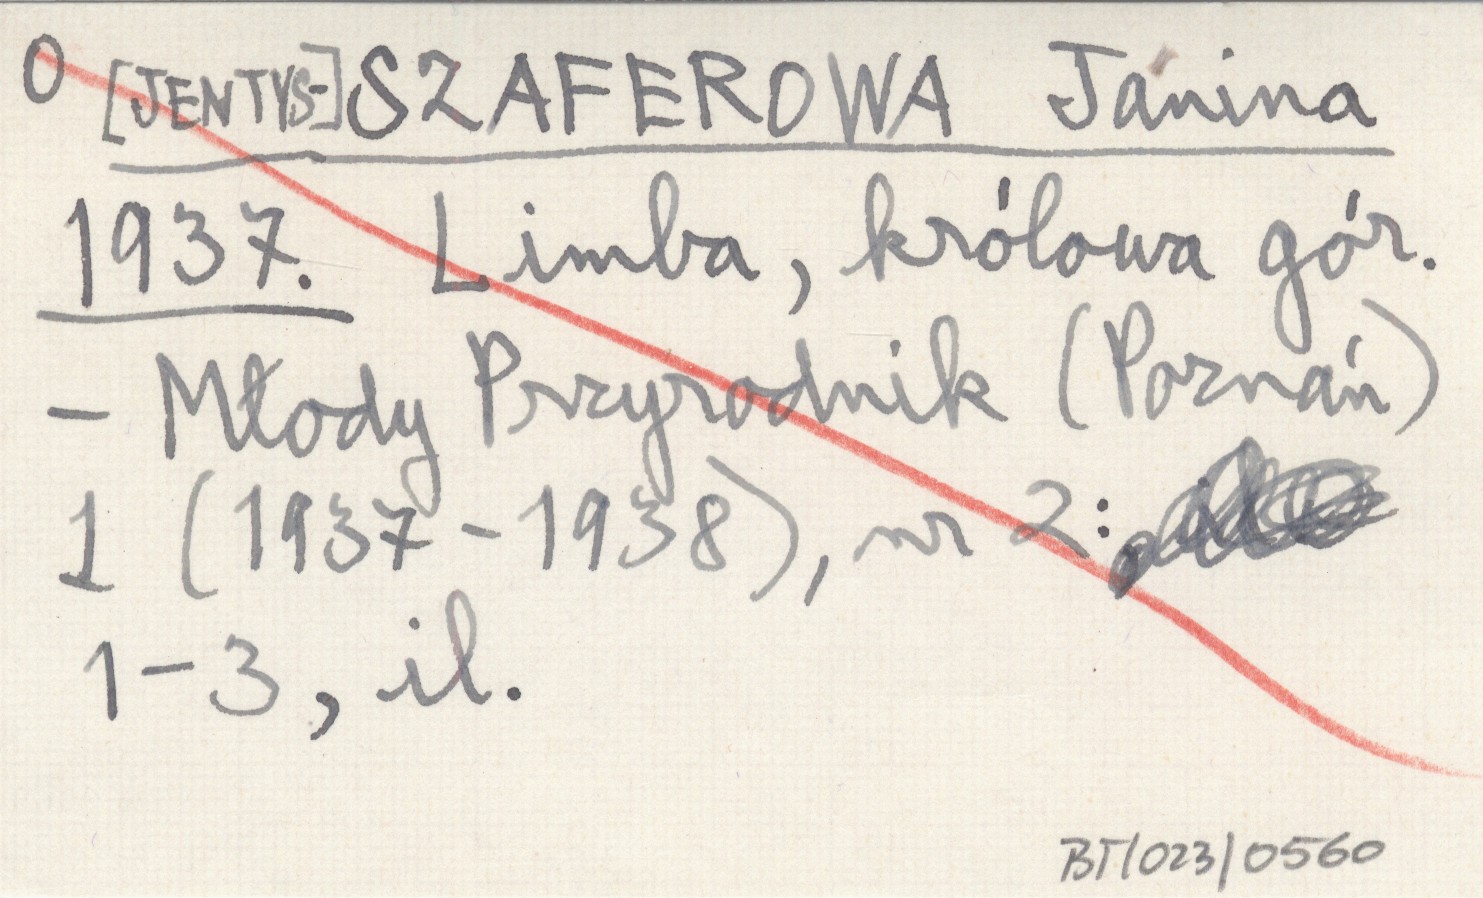 O [JENTYS-]SZAFEROWA Janina
1937. Limba, królowa gór.
- Młody Przyrodnik (Poznań)
1 (1937-1938), nr 2:
1-3, il.
BT/023/0560